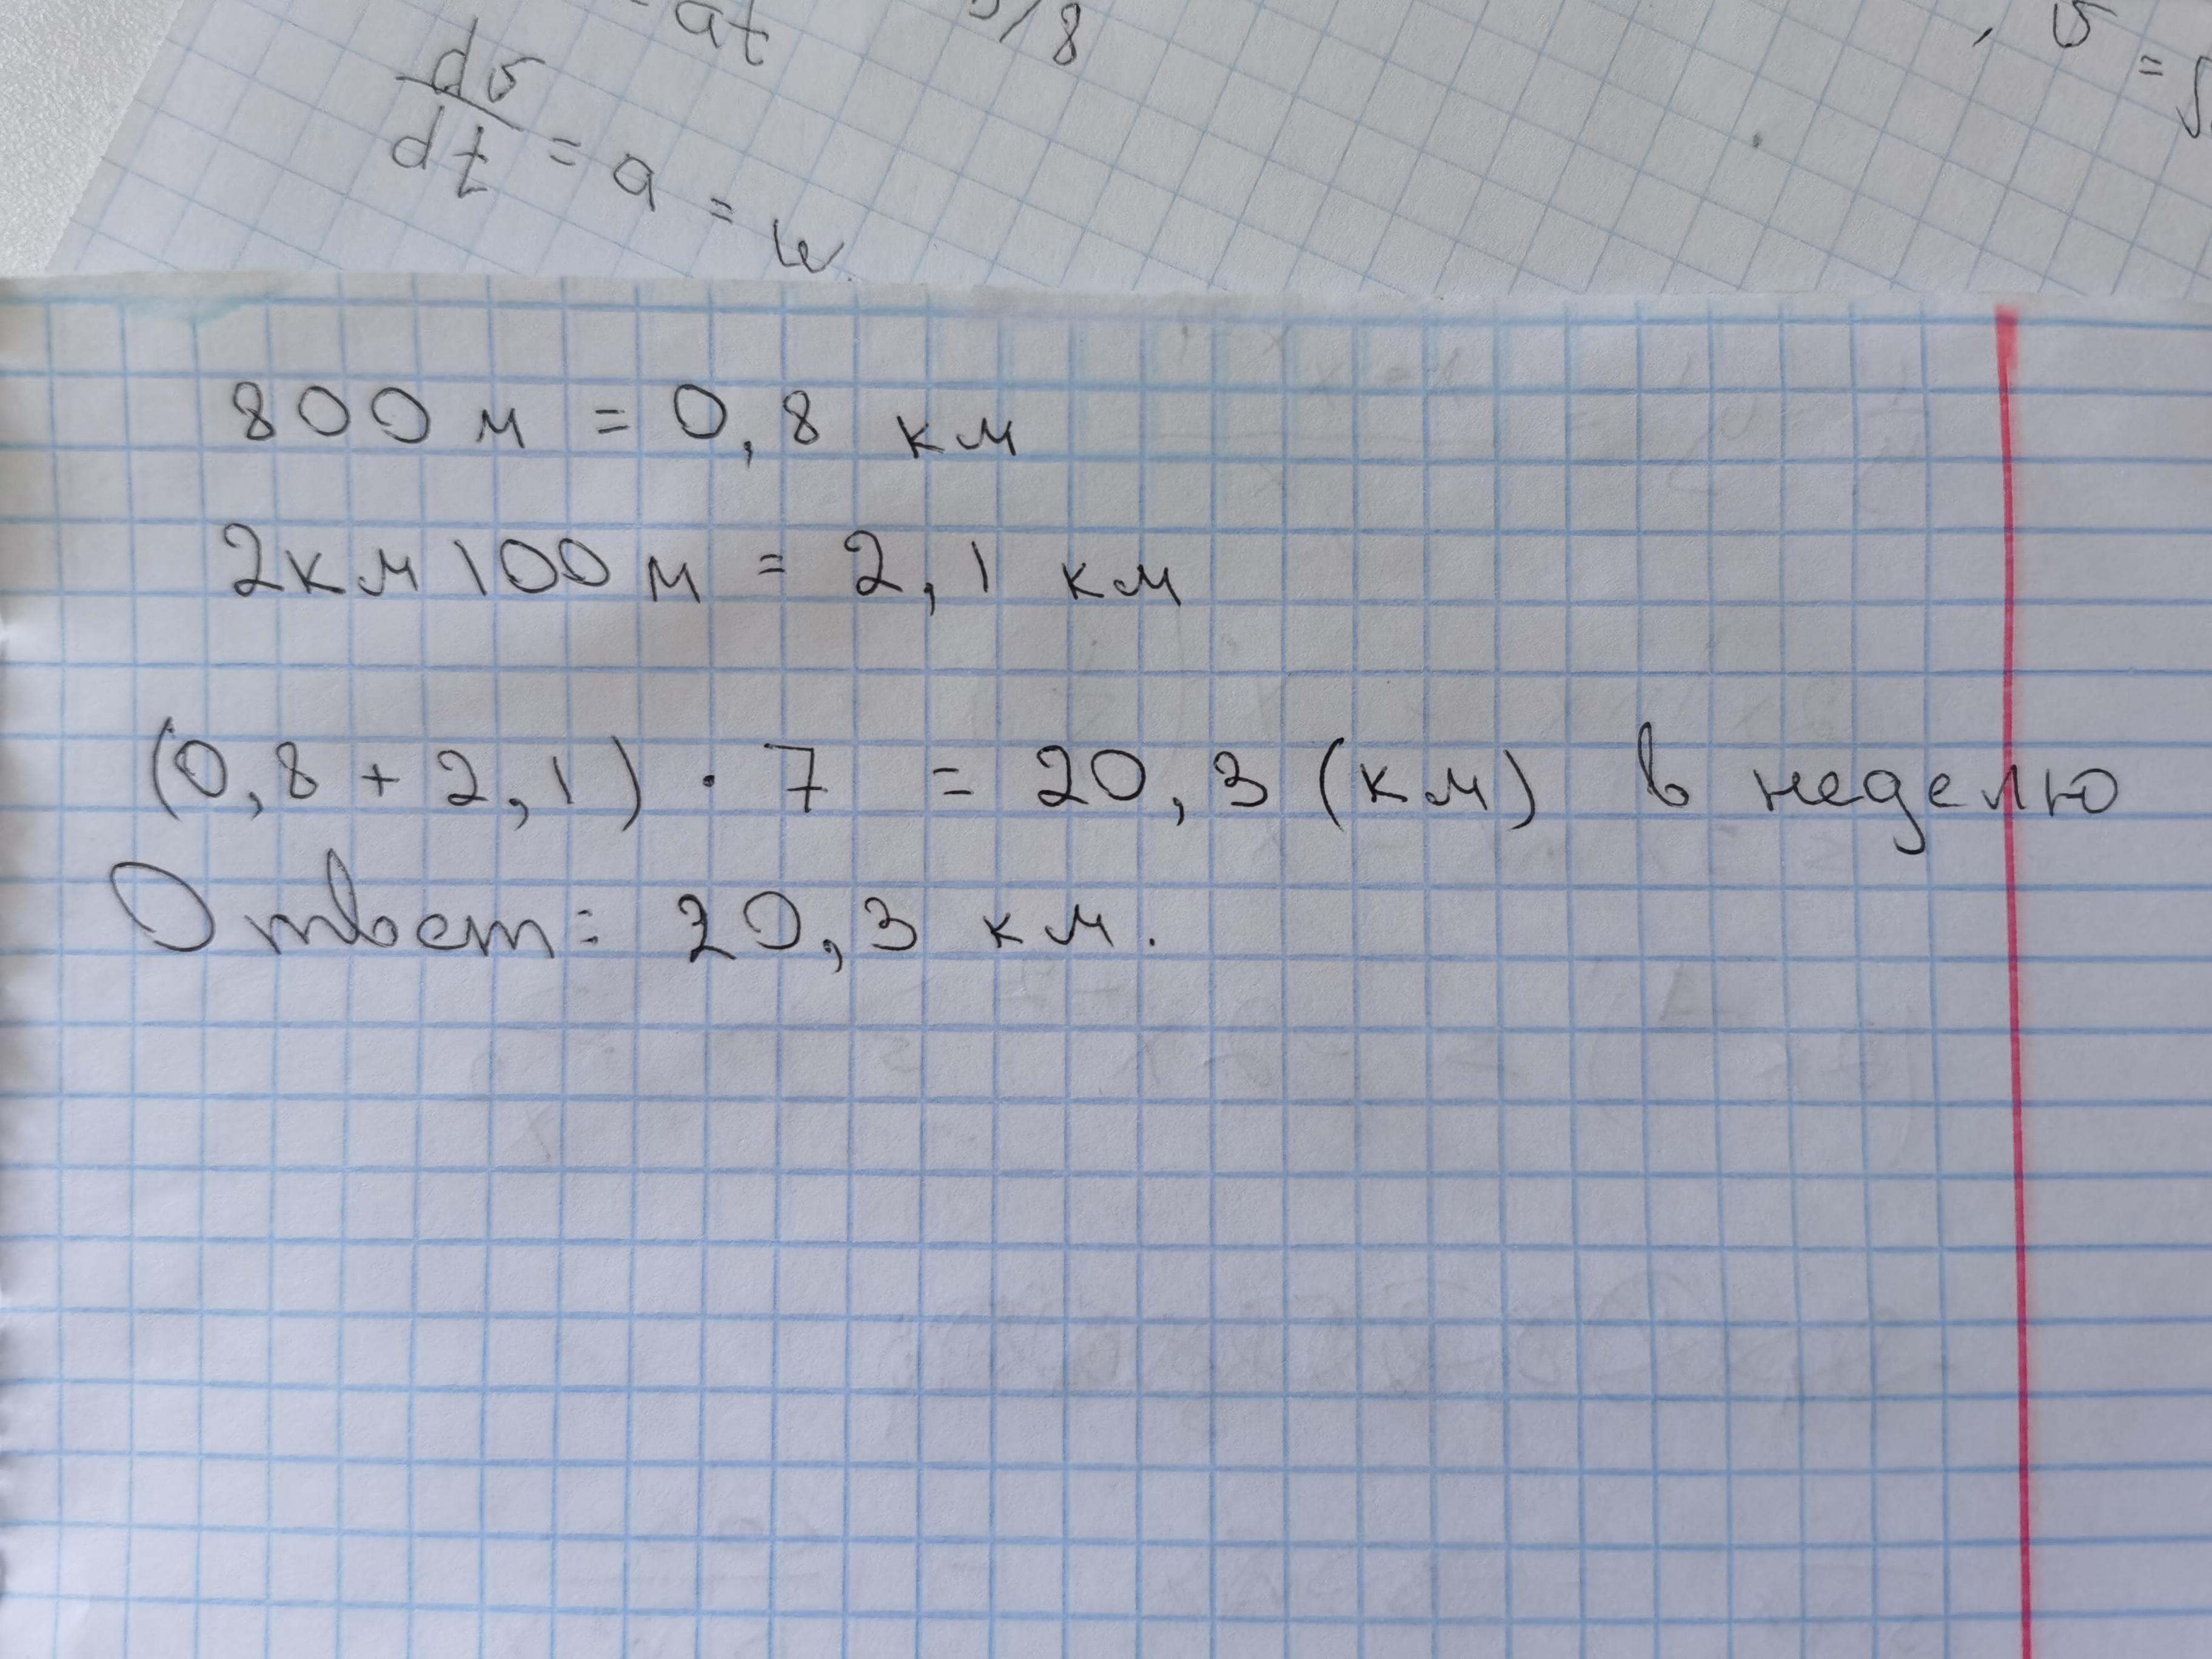 = at
/8
, v = ∫
dv/dt = a =
800 м = 0,8 км
2км 100 м = 2,1 км
(0,8 + 2,1) · 7 = 20,3 (км) в неделю
Ответ: 20,3 км.